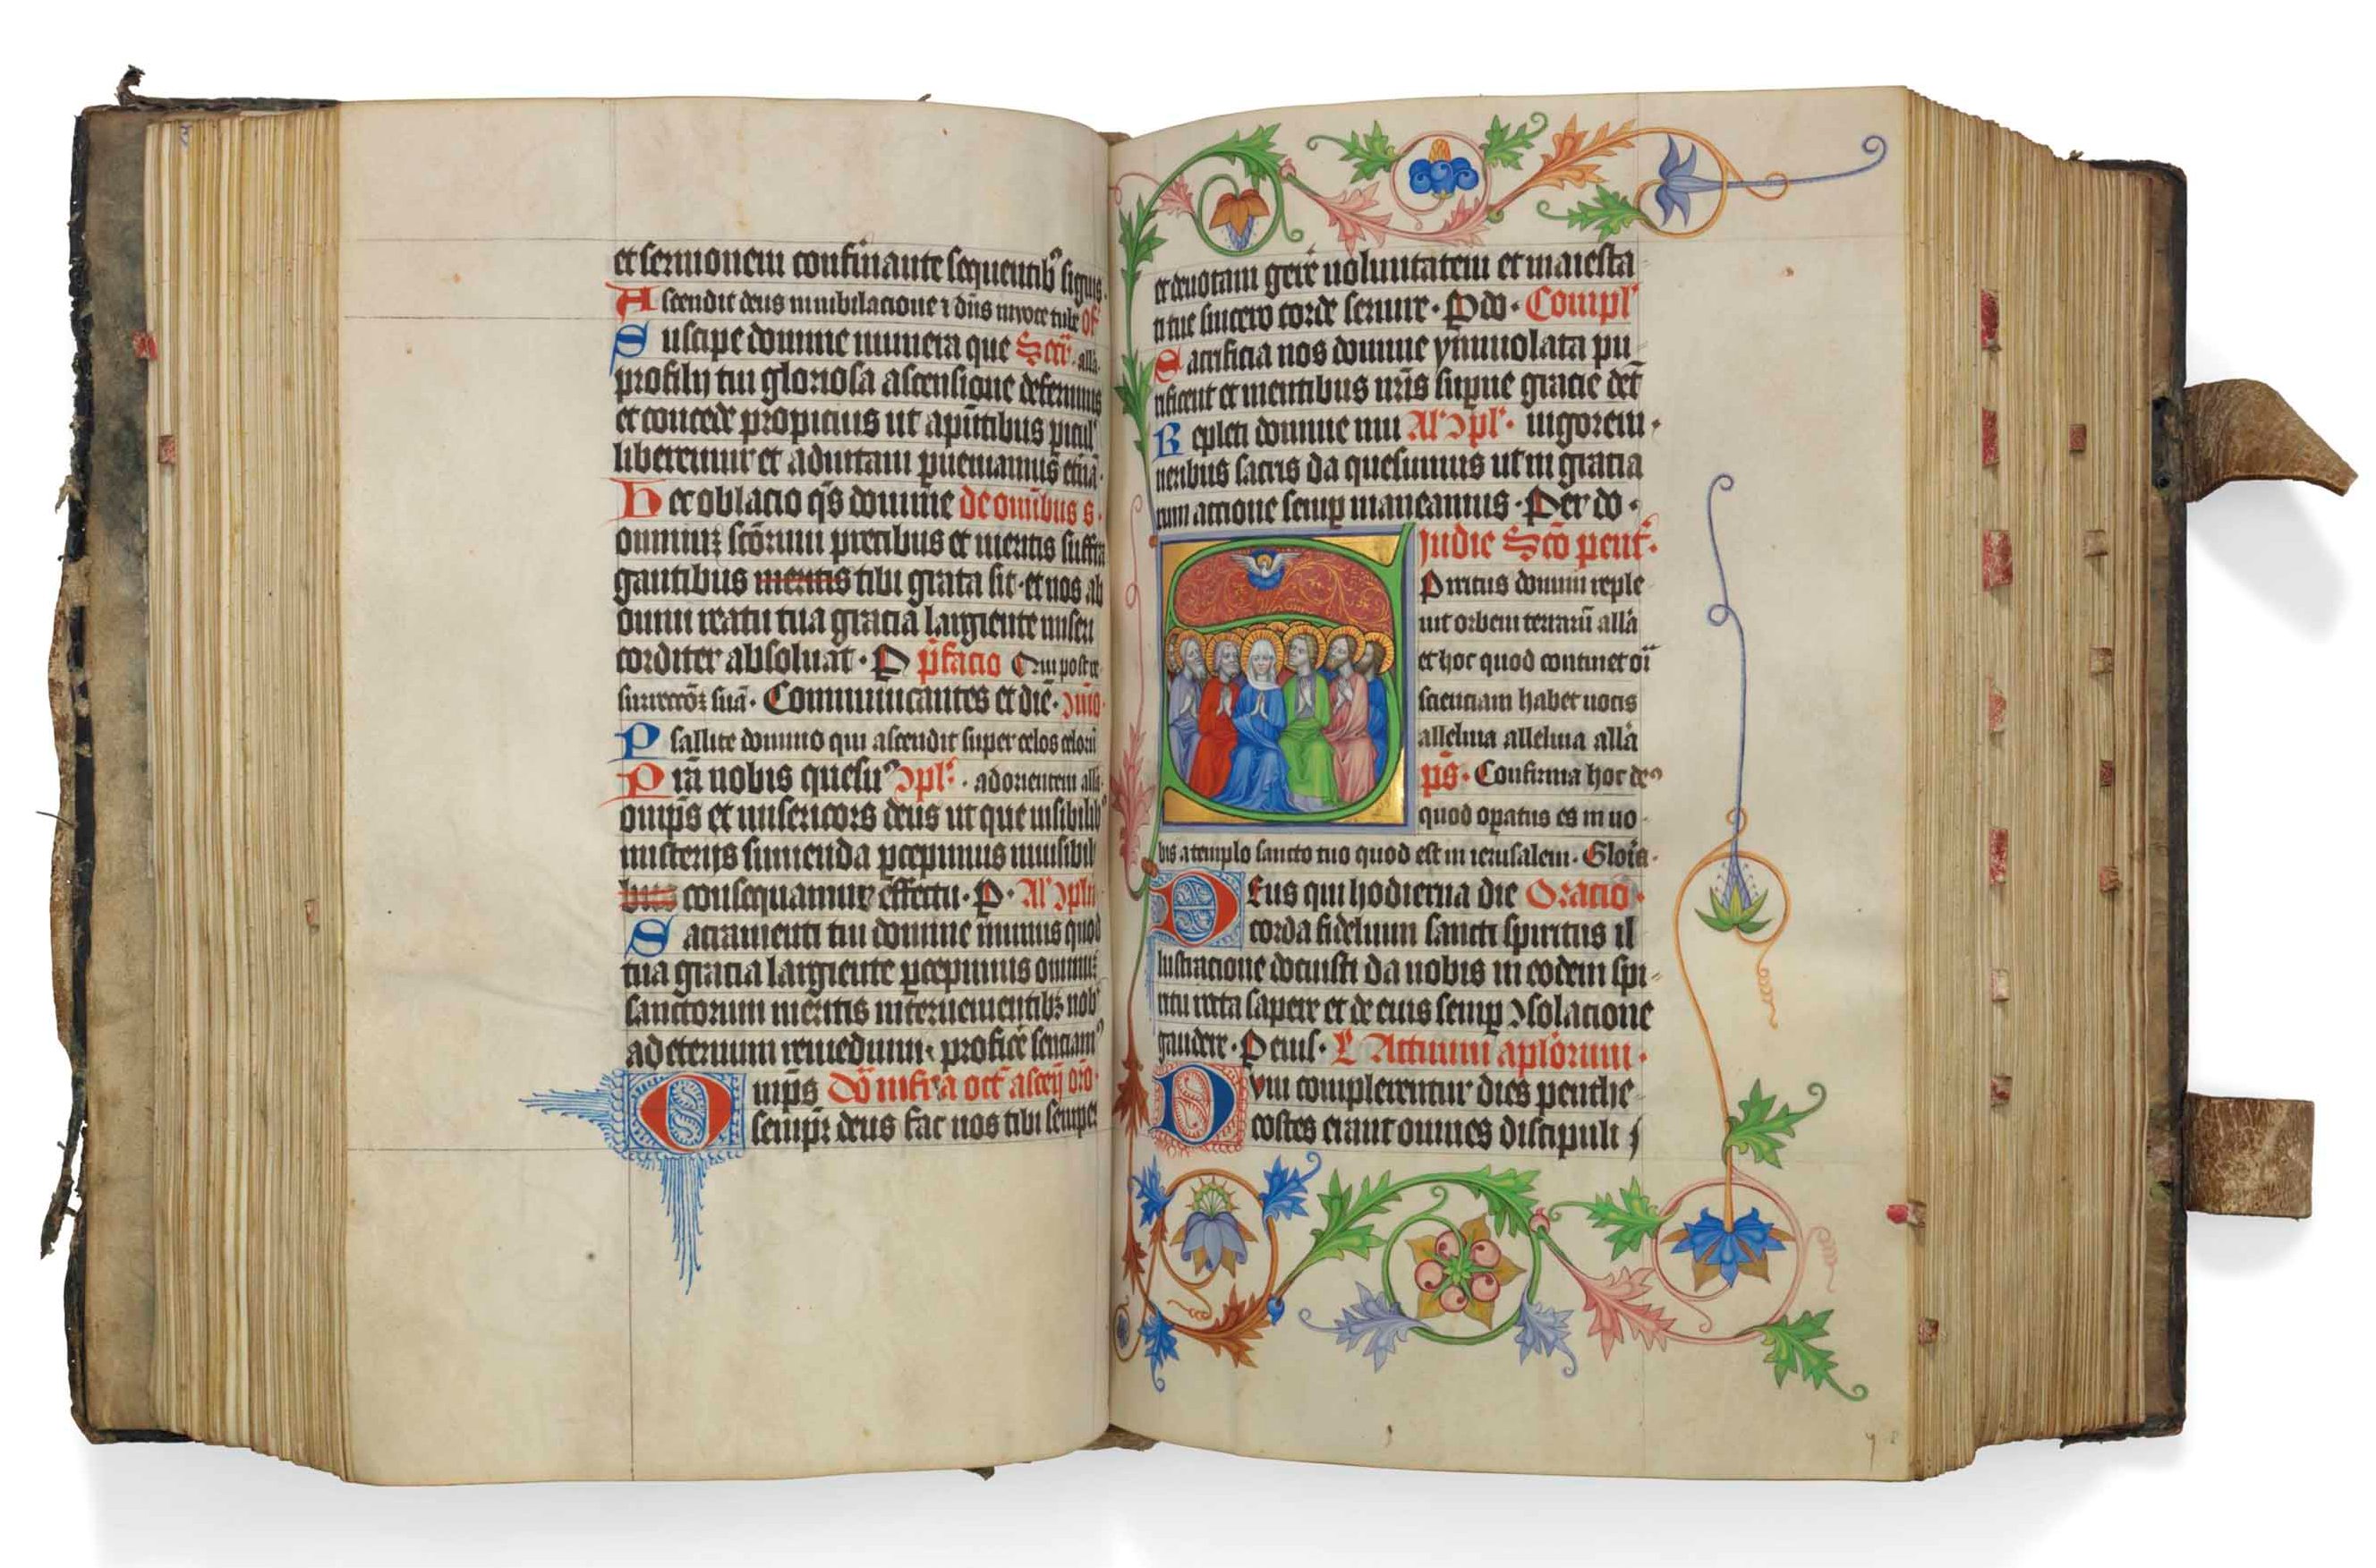 et sermonem confirmante sequentib⁹ signis.
Ascendit deus in iubilacione ⁊ dn̄s in voce tube Of
Suscipe domine munera que Sec̄r. alla.
pro filij tui gloriosa ascensione deferimus
et concede propicius ut a p̄ntibus p̄icul'
liberemur et ad uitam p̄ueniamus et̄nā.
Hec oblacio q̄s domine de om̄ibus s.
omniuꝫ sc̄orum precibus et meritis suffra
gantibus meritis tibi grata sit · et nos ab
omni reatu tua gracia largiente miseri
corditer absoluat · P p̄facio Qui post re
surrecc̄oꝫ suā · Communicantes et diē ·
Psallite domino qui ascendit super celos celorū
Pr̄a nobis quesu⁹ ↄpl' · ad orientem alla.
omp̄s et misericors deus ut que uisibilib⁹
misterijs sumenda ꝑcepimus inuisibili
bus consequamur effectu · P · Al' ↄpln
Sacramenti tui domine munus quod
tua gracia largiente ꝑcepimus omniuꝫ
sanctorum meritis interuenientibꝫ nob̄
ad eternum remedium · proficē senciam⁹
Omp̄s Dō infra oct̄ asceņ oro ·
semp̄t̄ deus fac nos tibi semper
et deuotam gerē uoluntatem et maiesta
ti tue sincero corde seruire · P do · Compl'
Sacrificia nos domine ymmolata pu
rificent et mentibus nr̄is sup̄ne gracie det̄
Repleti domine mu Al' ↄpl' · uigorem ·
neribus sacris da quesumus ut in gracia
rum accione semꝑ maneamus · Per do ·
In die Sc̄o pent̄ ·
Spiritus domini reple
uit orbem terrarū alla
et hoc quod continet oī
scienciam habet uocis
alleluia alleluia alla
p̄s · Confirma hoc de⁹
quod oꝑatus es in no
bis a templo sancto tuo quod est in ierusalem · Glor̄a ·
Deus qui hodierna die Oracio ·
corda fidelium sancti spiritus il
lustracione docuisti da nobis in eodem spi
ritu recta sapere et de eius semꝑ ↄsolacione
gaudere · P eius · L Actuum ap̄lorum ·
Dvm complerentur dies penthe
costes erant omnes discipuli